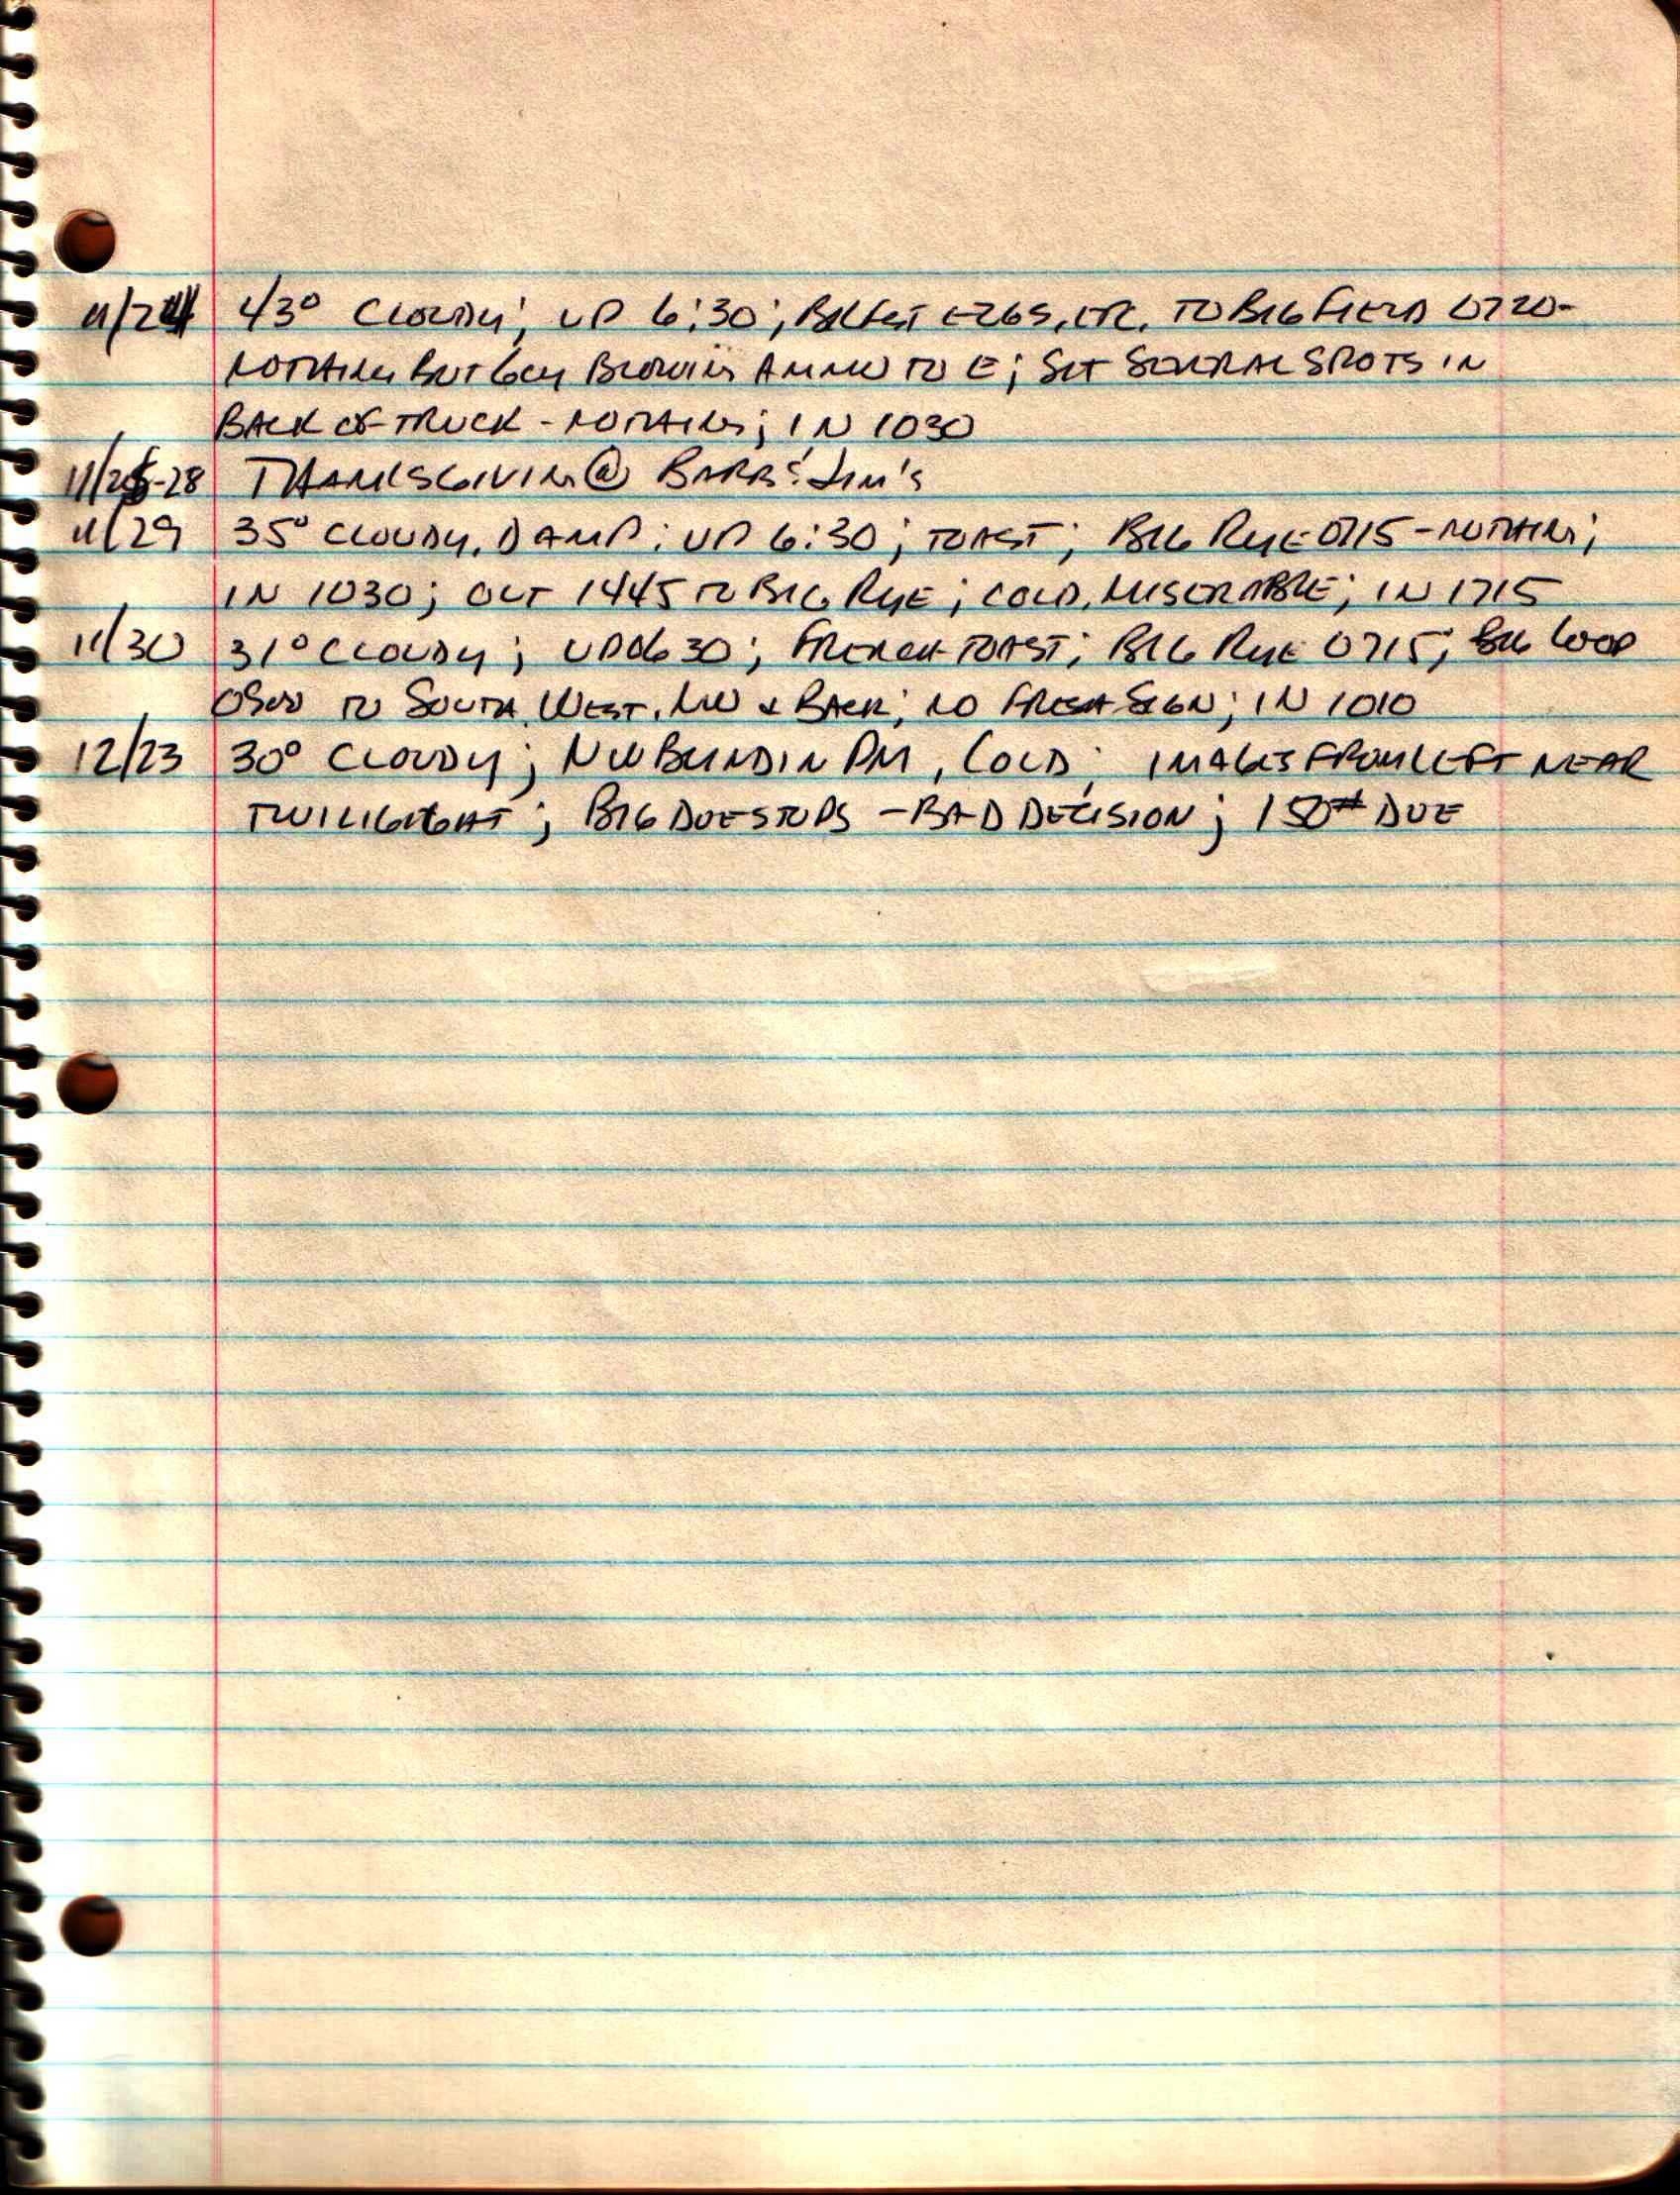 11/24 43° CLOUDY; UP 6:30; BRKFST EGGS, ETC. TO BIG FIELD 0720-
NOTHING BUT GUY BLOWING AMMO TO E; SET SEVERAL SPOTS IN
BACK OF TRUCK - NOTHING; IN 1030
11/25-28 THANKSGIVING @ BARB & JIM'S
11/29 35° CLOUDY, DAMP; UP 6:30; TOAST; BIG RYE 0715 - NOTHING;
IN 1030; OUT 1445 TO BIG RYE; COLD, MISERABLE; IN 1715
11/30 31° CLOUDY; UP 0630; FRENCH TOAST; BIG RYE 0715; BIG LOOP
0900 TO SOUTH, WEST, NW & BACK; NO FRESH SIGN; IN 1010
12/23 30° CLOUDY; NW BLIND IN PM, COLD; IMAGES FROM LEFT NEAR
TWILIGHT; BIG DOE STOPS - BAD DECISION; 150# DOE